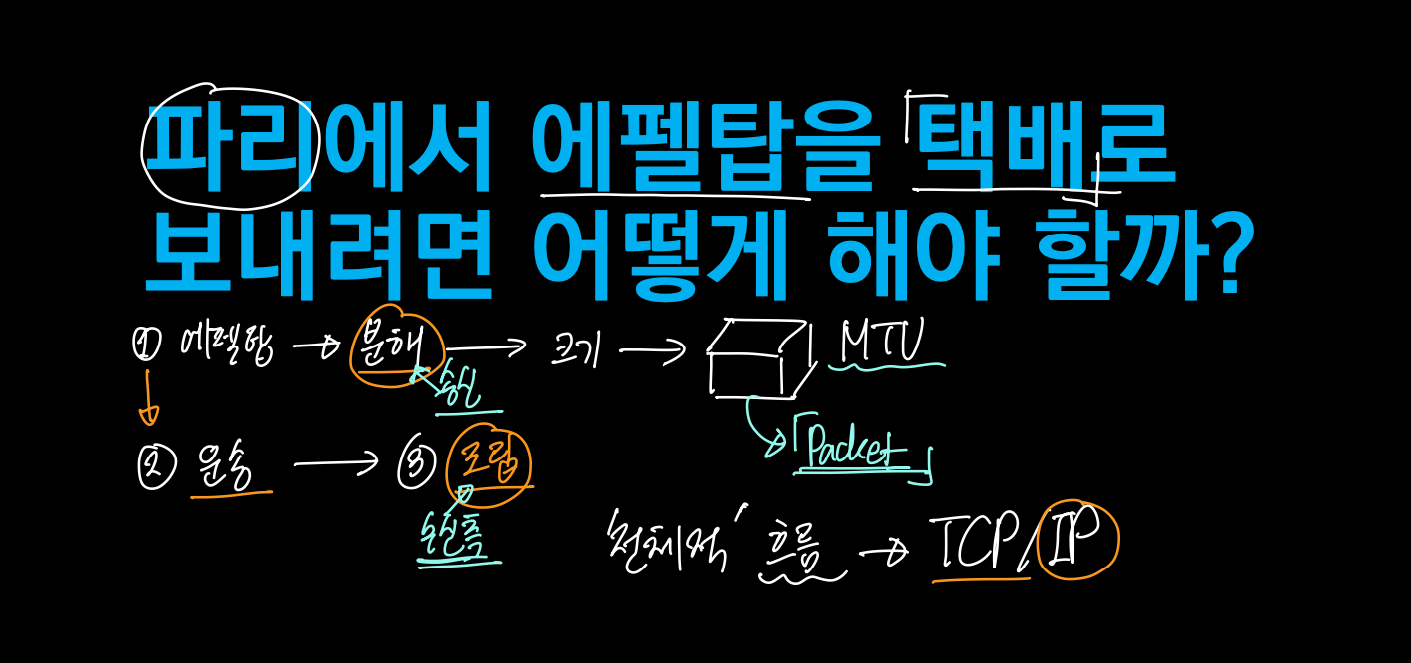 파리에서 에펠탑을 「택배」로
보내려면 어떻게 해야 할까?
① 에펠탑 → 분해 → 크기 → MTU
송신
「Packet」
② 운송 → ③ 조립
수신측
'전체적' 흐름 → TCP/IP